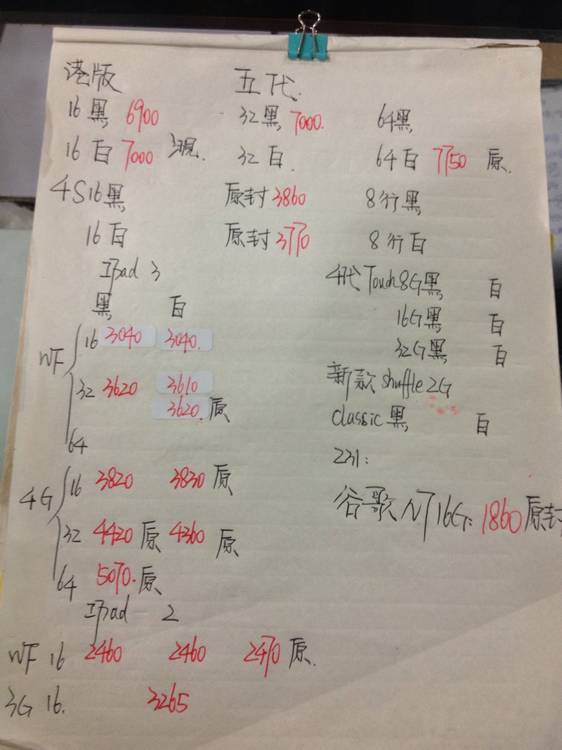 港版 五代
16黑 6900 32黑 7000. 64黑
16白 7000 现. 32白. 64白 7750 原.
4S16黑 原封3860 8行黑
16白 原封3770 8行白
Ipad 3 4代Touch8G黑 白
黑 白 16G黑 白
WF 16 3040 3040. 32G黑 白
32 3620 3610 新款shuffle2G
3620. 原 classic黑 白
64 231:
4G 16 3820 3830 原 谷歌N716G: 1860原封
32 4420原 4360 原
64 5070.原
Ipad 2
WF 16 2460 2460 2470原.
3G 16. 3265